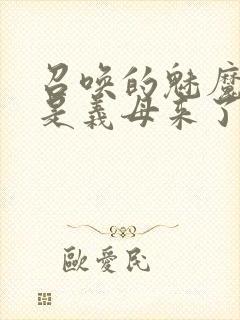 召唤的魅魔
是義母来了
歐愛民